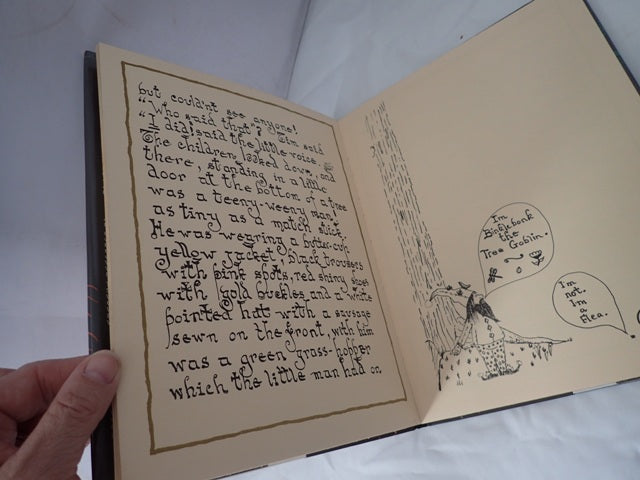 but couldn't see anyone!
"Who said that"? Tim said
"I did! said the little voice.
The children looked down, and
there, standing in a little
door at the bottom of a tree
was a teeny-weeny man!
as tiny as a match stick.
He was wearing a butter-cup
yellow jacket, black trousers
with pink spots, red shiny shoes
with gold buckles and a white
pointed hat with a sausage
sewn on the front, with him
was a green grass-hopper
which the little man had on
I'm
Binklebonk
the
Tree Goblin.
I'm
not.
I'm
a
flea.